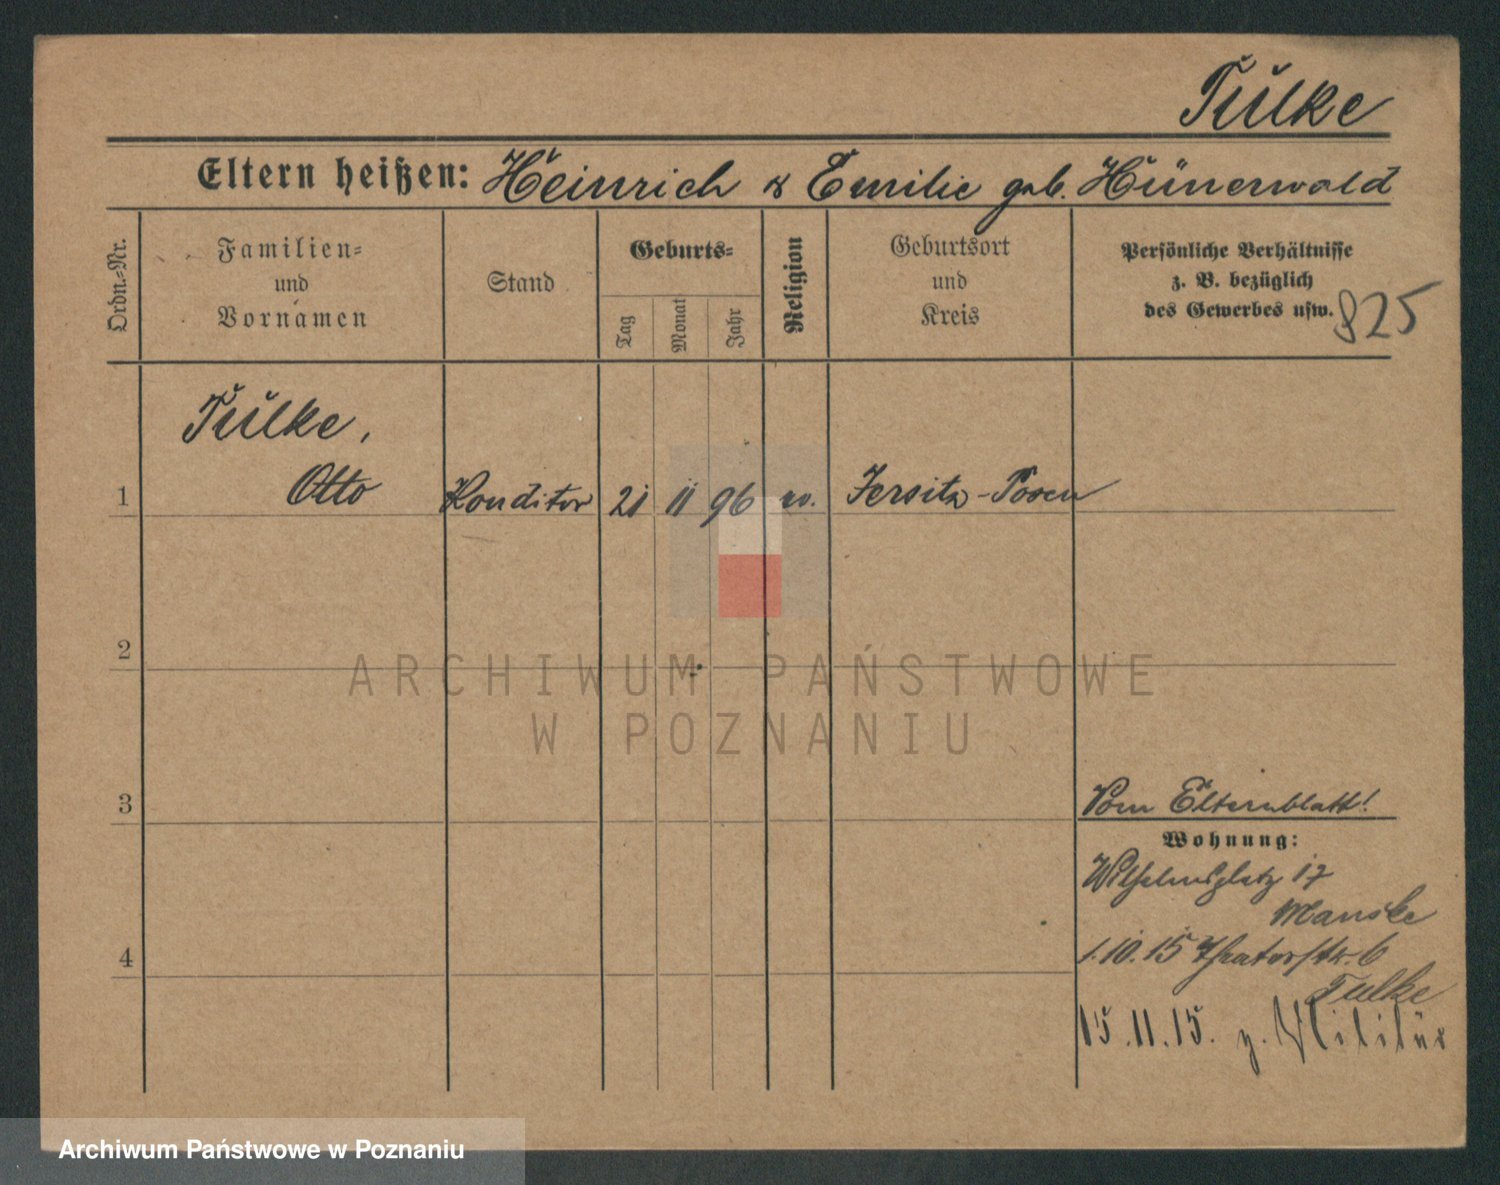 Tulke
Eltern heißen: Heinrich & Emilie geb. Hünerwald
Ordn.=Nr.
Familien=
und
Vornamen
Stand
Geburts=
Tag
Monat
Jahr
Religion
Geburtsort
und
Kreis
Persönliche Verhältnisse
z. B. bezüglich
des Gewerbes usw.
825
Tulke,
1 Otto Konditor 21 11 96 ev. Jersitz-Posen
2
3
4
Vom Elternblatt!
Wohnung:
Wilhelmsplatz 17
Manske
1.10.15 Theaterstr. 6
Tulke
15.11.15. z. Militär
ARCHIWUM PAŃSTWOWE
W POZNANIU
Archiwum Państwowe w Poznaniu